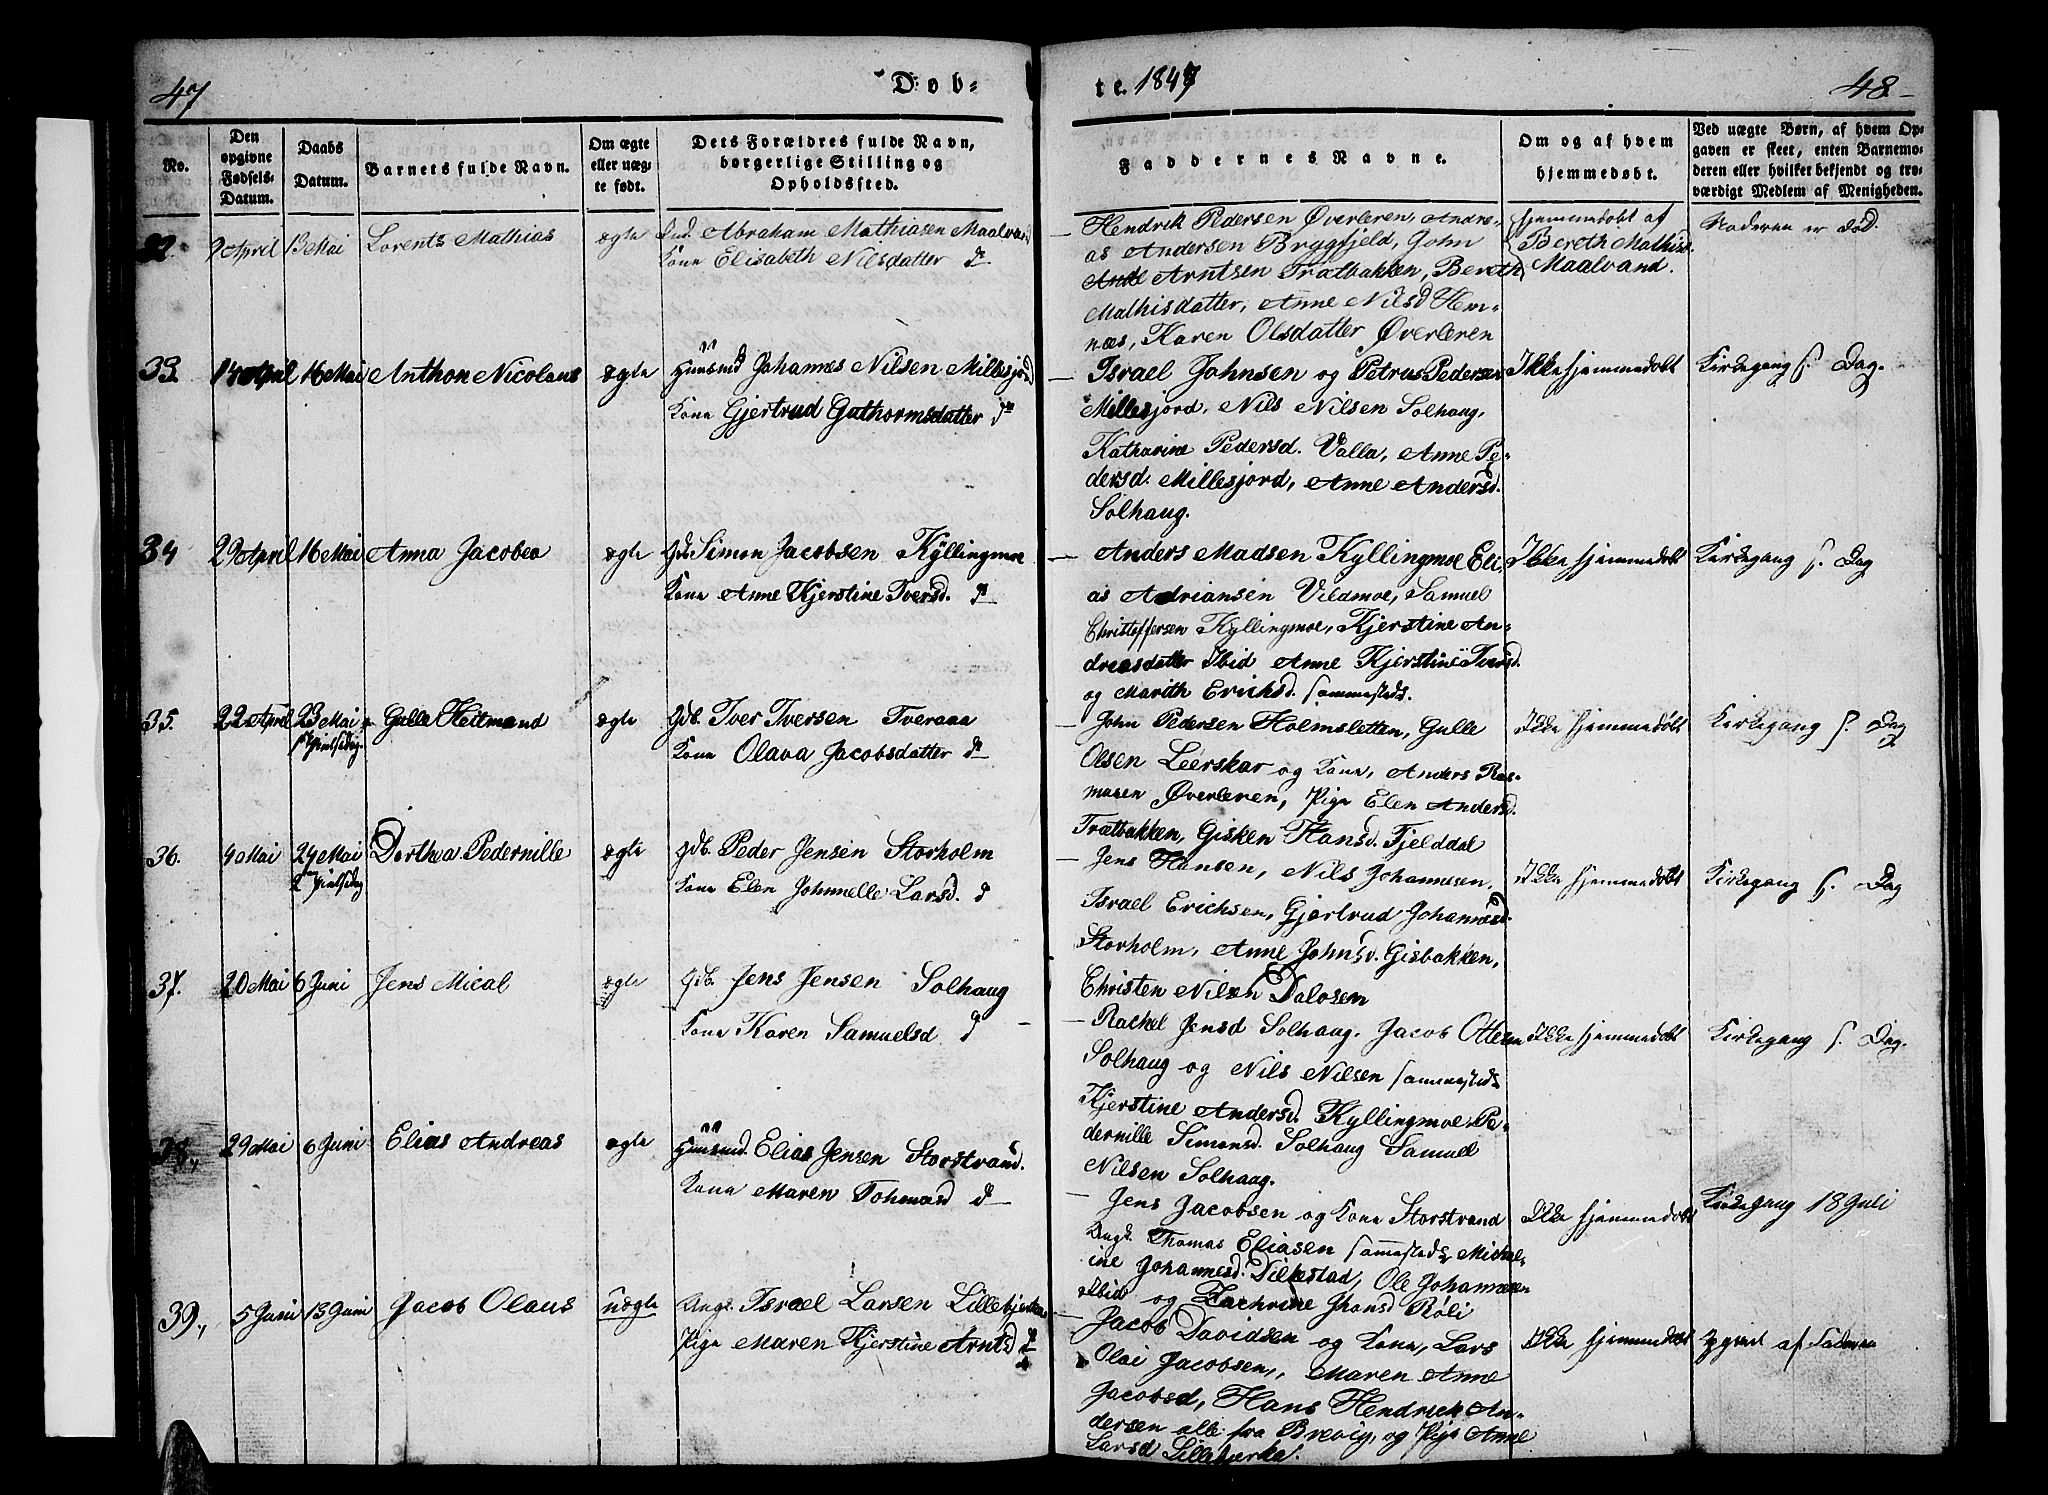 47
Døb-
te. 1847
48
No.
Den
opgivne
Fødsels-
Datum.
Daabs
Datum.
Barnets fulde Navn.
Om ægte
eller uæg-
te født.
Dets Forældres fulde Navn,
borgerlige Stilling og
Opholdssted.
Faddernes Navne.
Om og af hvem
hjemmedøbt.
Ved uægte Børn, af hvem Op-
gaven er skeet, enten Barnemo-
deren eller hvilket bekjendt og tro-
værdigt Medlem af Menigheden.
32. 9 April 13 Mai Lorents Mathias ægte Abraham Mathiasen Maalvand
Kone Elisabeth Nilsdatter
Hendrik Pedersen Øverleren, Andre-
as Andersen Bryggfjeld, John
Arntsen Trætbakken, Bereth
Mathisdatter, Anne Nilsd Hem-
næs, Karen Olsdatter Øverleren
Hjemmedøbt af
Bereth Mathisd.
Maalvand.
Moderen er død.
33. 14 April 16 Mai Anthon Nicolaus ægte Huusmd Johannes Nilsen Millesjord
Kone Gjertrud Guthormsdatter
Israel Johnsen og Petrus Pedersen
Millesjord, Nils Nilsen Solhaug,
Katharine Pedersd. Valla, Anne Pe-
dersd. Millesjord, Anne Andersd.
Solhaug.
Ikke hjemmedøbt
Kirkegang s. Dag.
34 29 April 16 Mai Anna Jacobea ægte Gdb. Simon Jacobsen Kyllingmoe
Kone Anne Kjerstine Iversd.
Anders Madsen Kyllingmoe, Eli-
as Adriansen Vildmoe, Samuel
Christoffersen Kyllingmoe, Kjerstine An-
dreasdatter Ibid Anne Kjerstine Iversd.
og Marith Erichsd. sammesteds.
Ikke hjemmedøbt
Kirkegang s. Dag
35. 22 April 23 Mai
1 Pintsedag
Gulle Heitmand ægte Gdb. Iver Iversen Tveraaa
Kone Olava Jacobsdatter
John Pedersen Holmsletten, Gulle
Olsen Leerskar og Kone, Anders Ras-
musen Øverleren, Pige Elen Andersd.
Trætbakken, Gisken Hansd. Fjelddal
Ikke hjemmedøbt
Kirkegang s. Dag
36. 4 Mai 24 Mai
2 Pintsedag
Dorthea Pedernille ægte Gdb. Peder Jensen Storholm
Kone Elen Johnnelle Larsd.
Jens Hansen, Nils Johannesen,
Israel Erichsen, Gjertrud Johannesd.
Storholm, Anne Johnsd. Gisbakken,
Christen Nilsen Dalosen
Ikke hjemmedøbt
Kirkegang s. Dag
37. 20 Mai 6 Juni Jens Mical ægte Gdb. Jens Jensen Solhaug
Kone Karen Samuelsd
Rachel Jensd Solhaug. Jacob Ottesen
Solhaug og Nils Nilsen sammesteds
Kjerstine Andersd. Kyllingmoe, Pe-
dernille Simonsd. Solhaug Samuel
Nilsen Solhaug.
Ikke hjemmedøbt
Kirkegang s. Dag.
38., 29 Mai 6 Juni Elias Andreas ægte Huusmd. Elias Jensen Storstrand.
Kone Maren Tohmasd
Jens Jacobsen og Kone Storstrand
Ungk. Thomas Eliasen sammesteds, Michel-
ine Johannesd. Dilkestad, Ole Johannesen
Ibid og Zachrine Jhansd Røli
Ikke hjemmedøbt
Kirkegang 18 Juli
39., 5 Juni 13 Juni Jacob Olaus uægte Ungk. Israel Larsen Lillebjerka
Pige Maren Kjerstine Arntsd
Jacob Davidsen og Kone, Lars
Olai Jacobsen, Maren Anne
Jacobsd, Hans Hendrick An-
dersen alle fra Brevig, og Pige Anne
Larsd Lillebjerka.
Ikke hjemmedøbt
Opgivet af Faderen